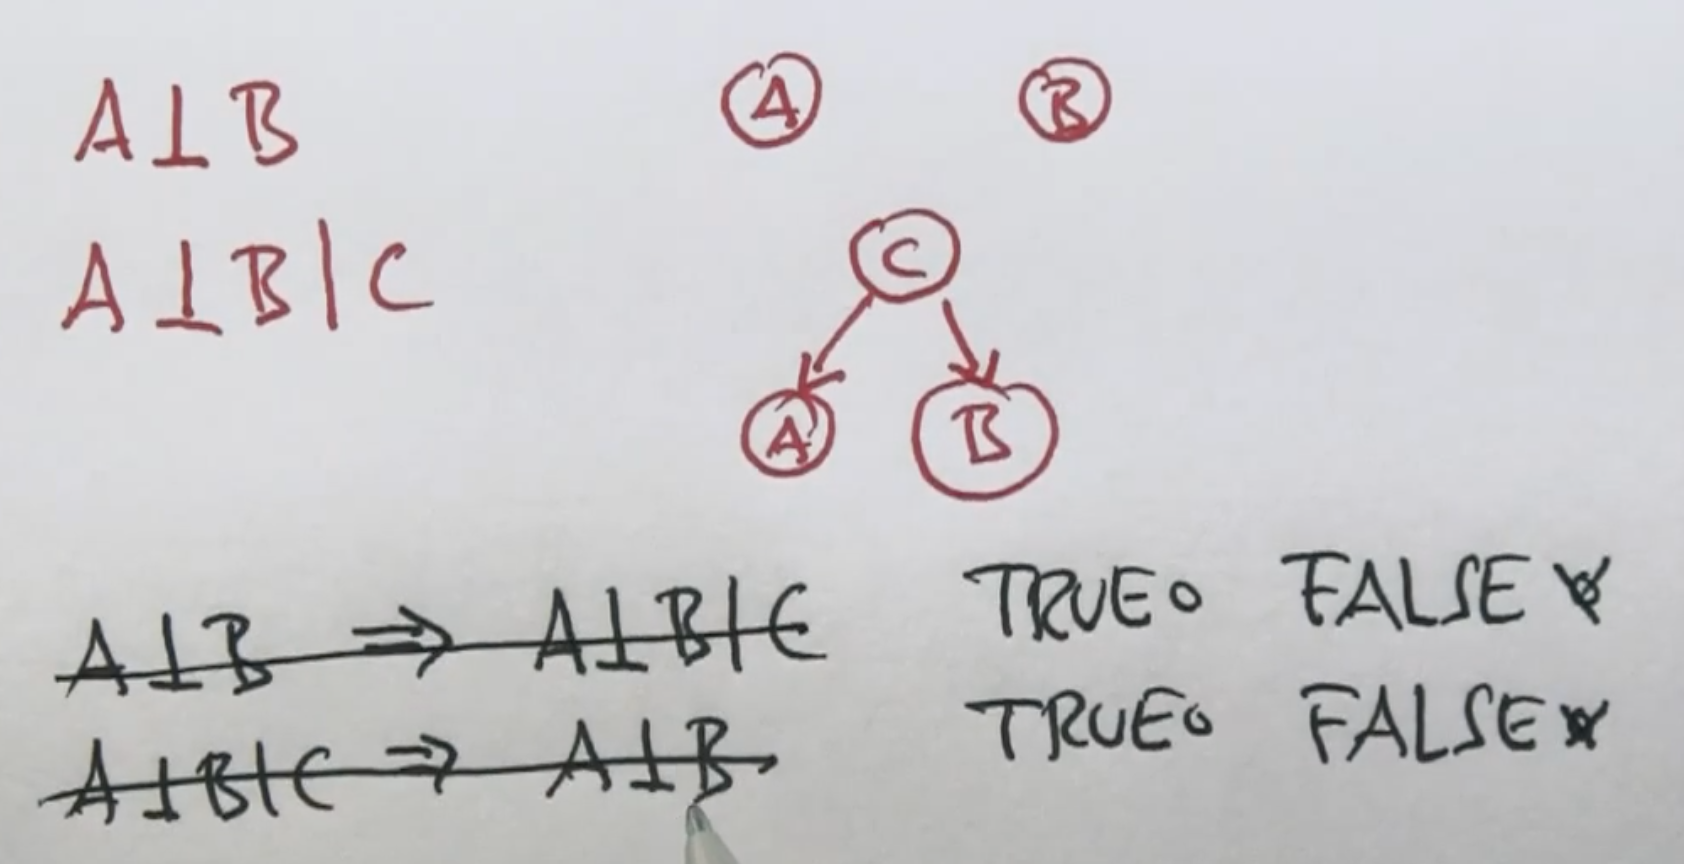 A⊥B
A B
A⊥B|C
C
A B
A⊥B ⇒ A⊥B|C TRUE FALSE
A⊥B|C ⇒ A⊥B TRUE FALSE